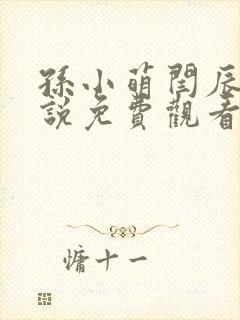 孫小萌閆辰
說免費觀看
慵十一